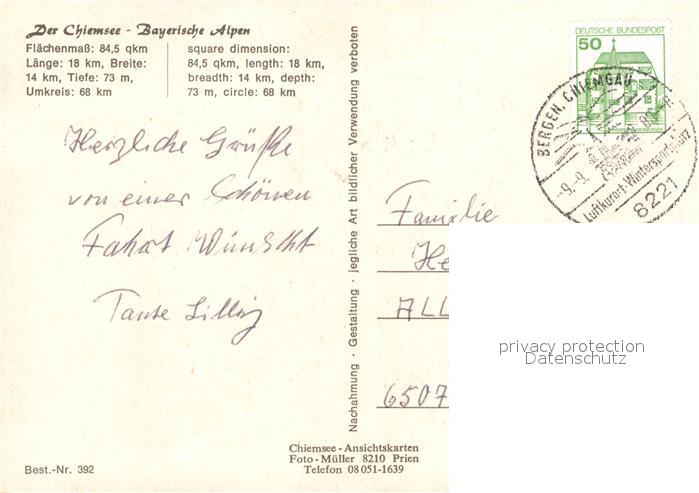 Der Chiemsee - Bayerische Alpen
Flächenmaß: 84,5 qkm
Länge: 18 km, Breite:
14 km, Tiefe: 73 m,
Umkreis: 68 km
square dimension:
84,5 qkm, length: 18 km,
breadth: 14 km, depth:
73 m, circle: 68 km
Herzliche Grüße
von einer Schönen
Fahrt Wünscht
Tante Lilly
Best.-Nr. 392
Nachahmung · Gestaltung · jegliche Art bildlicher Verwendung verboten
Chiemsee-Ansichtskarten
Foto-Müller 8210 Prien
Telefon 08 051-1639
DEUTSCHE BUNDESPOST
50
BERGEN, CHIEMGAU
-9.-9.
Luftkurort-Wintersportplatz
8221
Familie
He
ALL
6507
privacy protection
Datenschutz